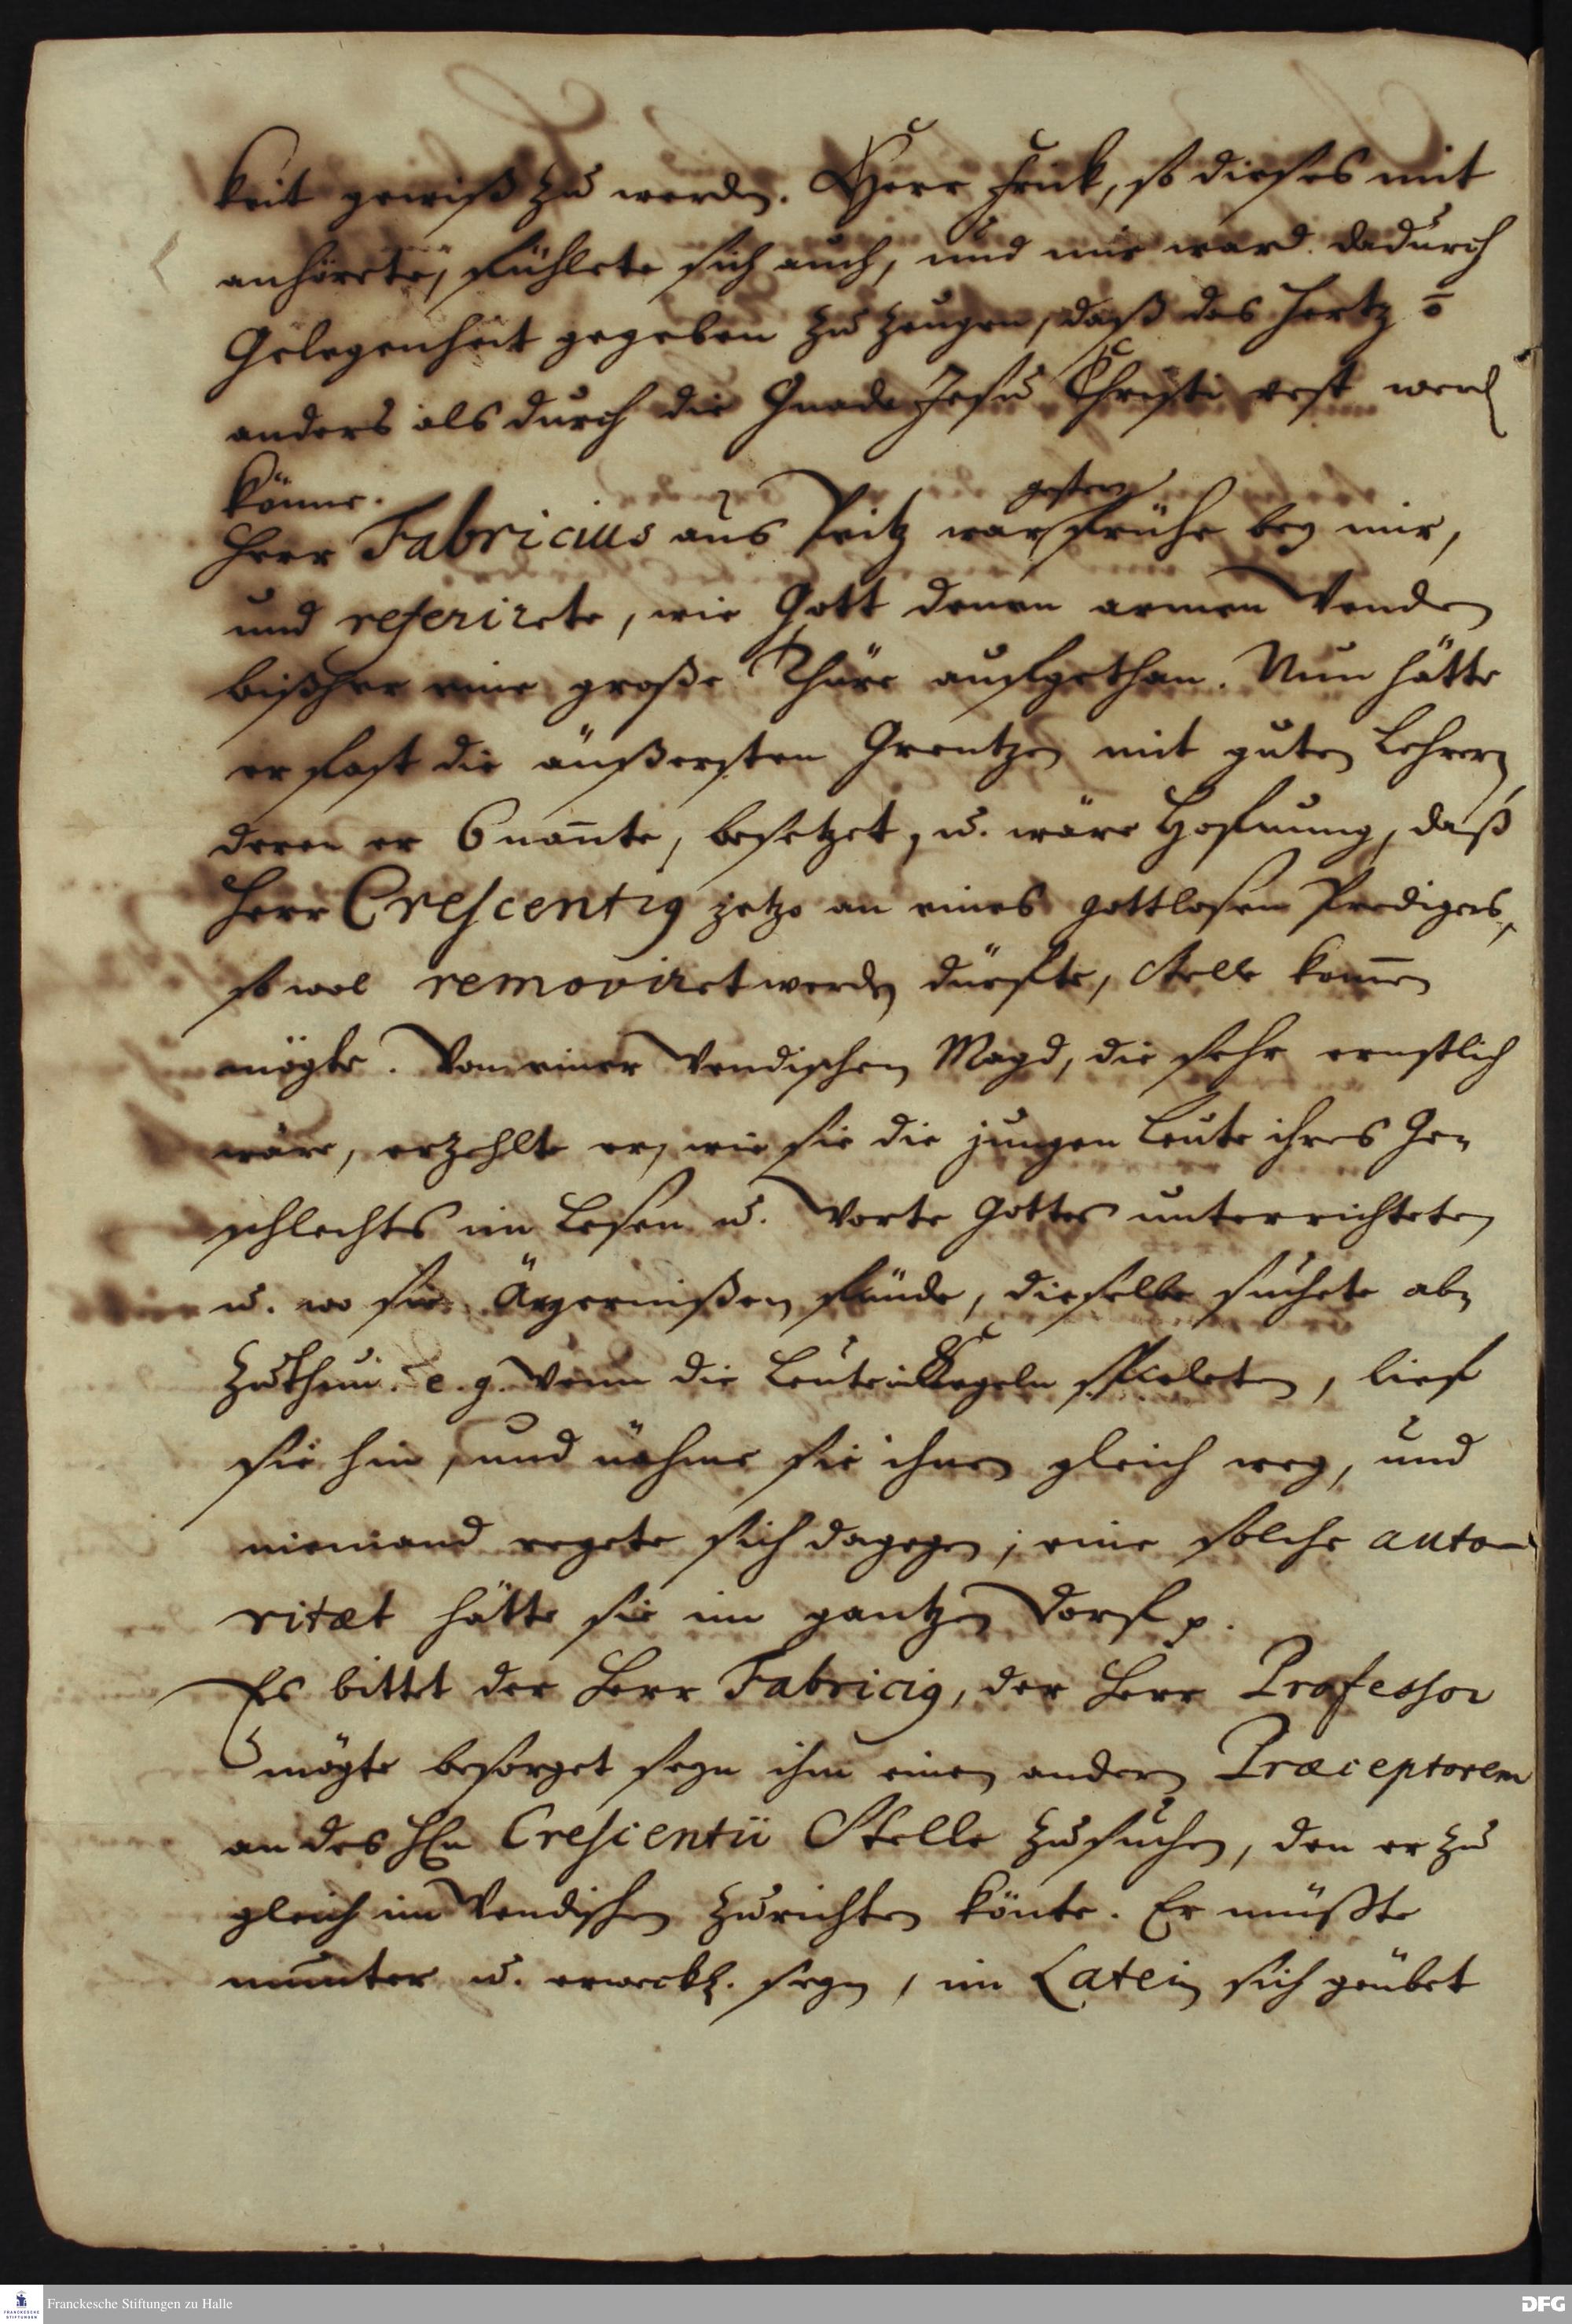 keit gewiß zu werden. Herr Frick, so dieses mit
anhörete, fühlete sich auch, und mir ward dadurch
Gelegenheit gegeben zu zeugen, daß das Hertz ō
anders als durch die Gnade Jesu Christi vest werd
könne.
Herr Fabricius aus Peitz war gestern frühe bey mir,
und referirete, wie Gott denen armen Wenden
bißher eine große Thüre aufgethan. Nun hätte
er fast die äußersten Grentzen mit guten Lehrern,
deren er 6 nañte, besetzet, u. wäre Hofnung, daß
Herr Crescentius jetzo an eines gottlosen Predigers,
so wol removiret werden dürfte, Stelle kom̃en
mögte. Von einer Wendischen Magd, die sehr ernstlich
wäre, erzehlte er, wie sie die jungen Leute ihres Ge-
schlechts im Lesen u. Worte Gottes unterrichtete,
u. wo sie Ärgernißen fünde, dieselbe suchete ab-
zuthun. e. g. Wenn die Leute in Kegeln spieleten, lief
sie hin, und nähme sie ihnen gleich weg, und
niemand regete sich dagegen; eine solche auto-
ritæt hätte sie im gantzen Dorf p.
Es bittet der Herr Fabricius, der Herr Professor
mögte besorget seyn ihm einen andern Præceptorem
an des HEn Crescentii Stelle zu suchen, den er zu
gleich im Wendischen zurichten könte. Er müßte
munter u. erweckl. seyn, im Latein sich geübet
Franckesche Stiftungen zu Halle
FRANCKESCHE STIFTUNGEN
DFG